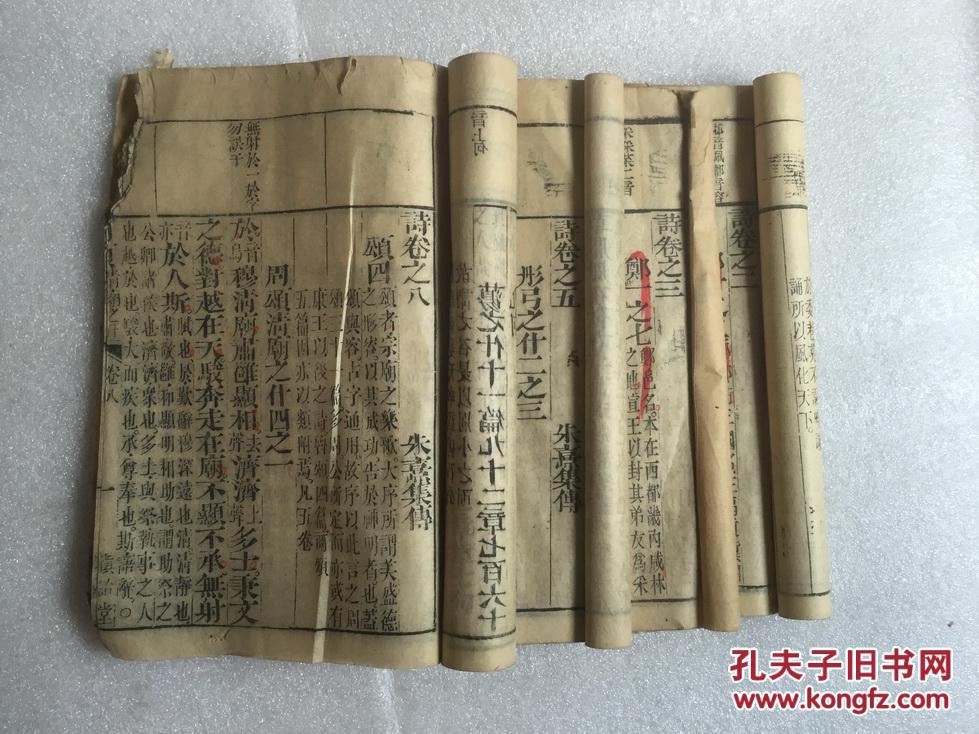 誦所以風化天下
詩卷之二
詩卷之三
鄭一之七
邑名本在西都畿內咸林
之地宣王以封其弟友爲采
詩卷之五
朱熹集傳
彤弓之什二之三
蕩之什十一篇九十二章七百六十
音上何
詩卷之八
朱熹集傳
頌四
頌者宗廟之樂歌大序所謂美盛德
之形容以其成功告於神明者也蓋
頌與容古字通用故序以此言之周
頌三十一篇多周公所定而亦或有
康王以後之詩魯頌四篇商頌
五篇因亦以類附焉凡五卷
周頌淸廟之什四之一
於音烏穆淸廟肅雝顯相去聲濟濟上聲多士秉文
之德對越在天駿奔走在廟不顯不承無射
音亦於人斯
賦也於歎辭穆深遠也淸淸靜也
肅敬雝和顯明相助也謂助祭之
公卿諸侯也濟濟衆也多士與祭執事之人
也越於也駿大而疾也承尊奉也斯語辭○
無射於一於字
勿誤于
卷八
一
慎詒堂
孔夫子旧书网
www.kongfz.com